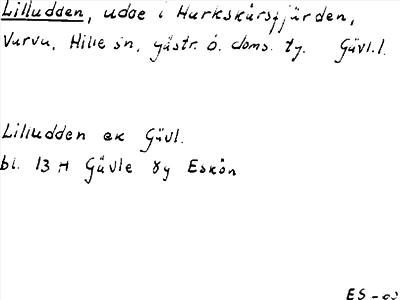 Lilludden, udde i Harkskärsfjärden,
Varva, Hille sn, gästr. ö. doms. tg. Gävl.l.
Lilludden ek Gävl.
bl. 13 H Gävle 8y Eskön
ES -